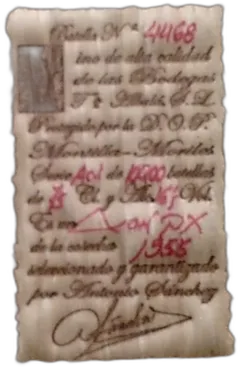 Botella Nº 4468
ino de alta calidad
de las Bodegas
T Albalá, S. L.
Protegido por la D. O. P.
Montilla-Moriles
Serie de botellas
de 75 Cl. y Alc. Vol.
Es un
de la cosecha 1955
seleccionado y garantizado
por Antonio Sánchez